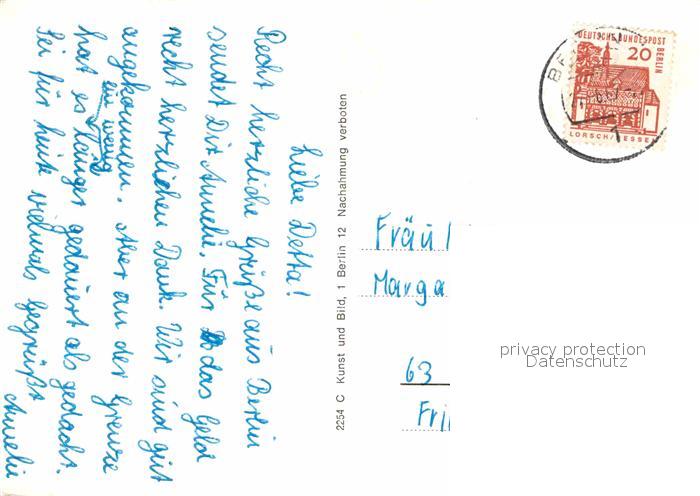 Liebe Detta!
Recht herzliche Grüße aus Berlin
sendet Dir Amelie. Für das Geld
recht herzlichen Dank. Wir sind gut
angekommen. Aber an der Grenze
hat es ein wenig länger gedauert als gedacht.
Sei für heute vielmals begrüßt
Amelie
2254 C Kunst und Bild, 1 Berlin 12 Nachahmung verboten
DEUTSCHE BUNDESPOST
BERLIN
20
LORSCH/HESSEN
BERLIN
1
Fräul
Marga
63
Fri
privacy protection
Datenschutz